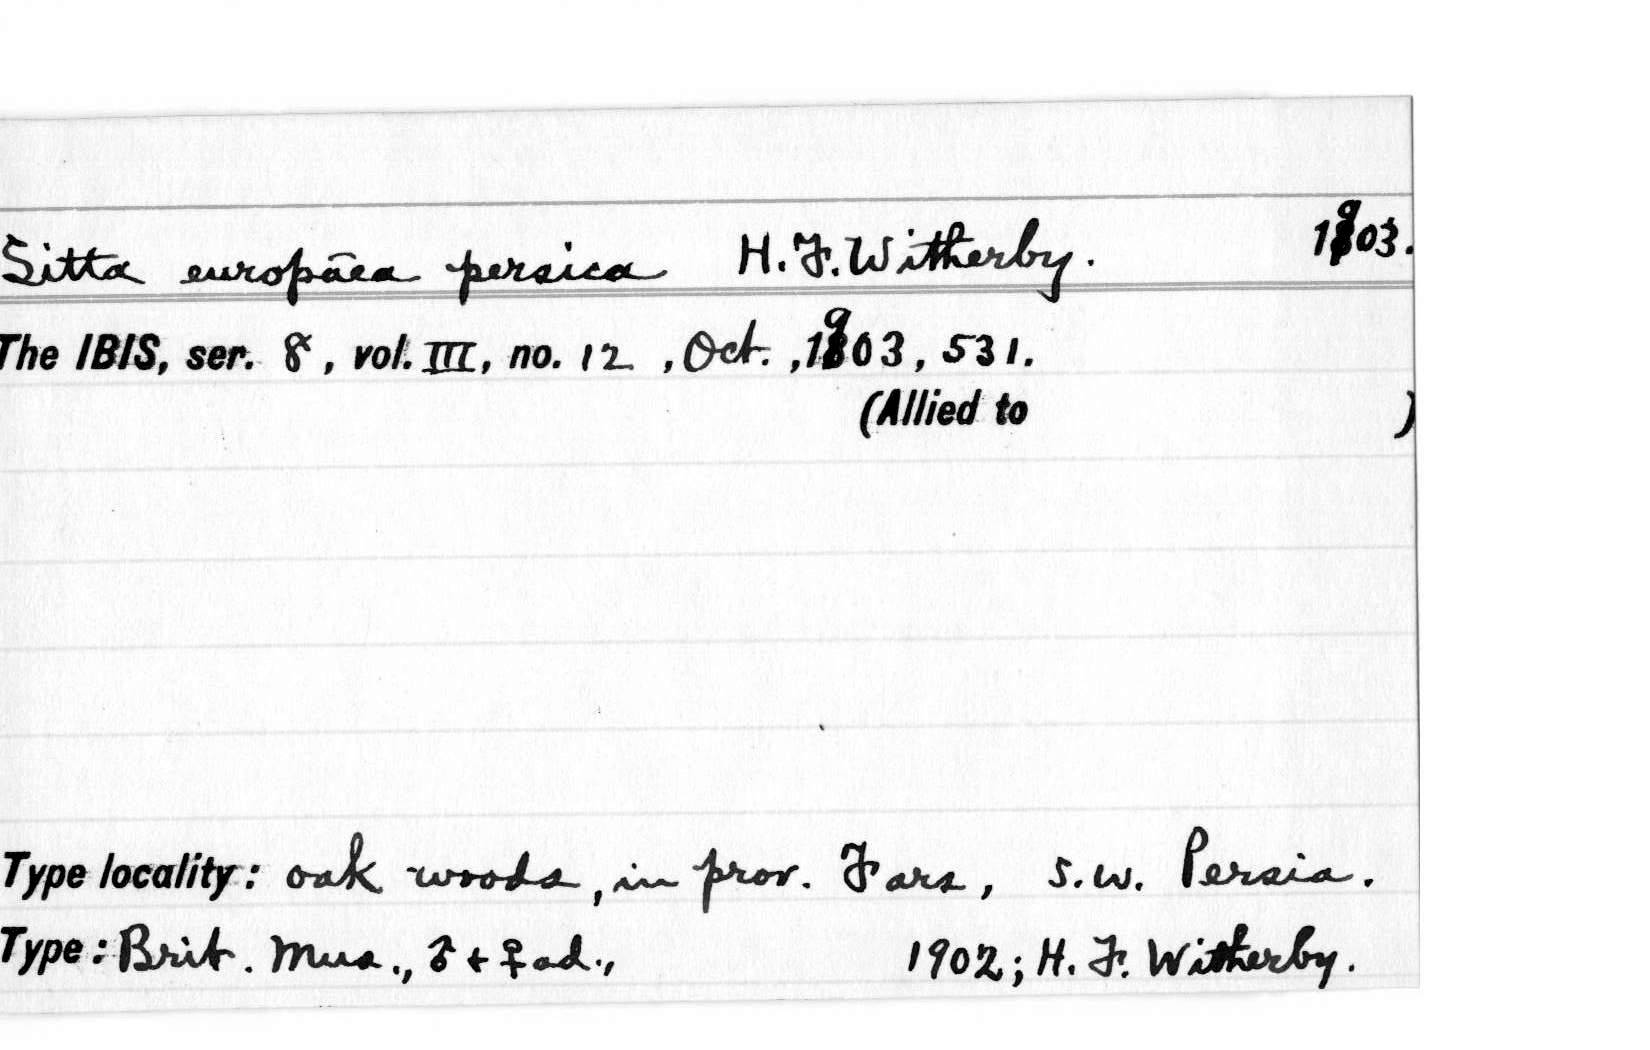 Sitta europāea persica H. F. Witherby. 1903.
The IBIS, ser. 8, vol. III, no. 12, Oct., 1903, 531.
(Allied to )
Type locality: oak woods, in prov. Fars, S.W. Persia.
Type: Brit. Mus., ♂ + ♀ ad., 1902; H. F. Witherby.